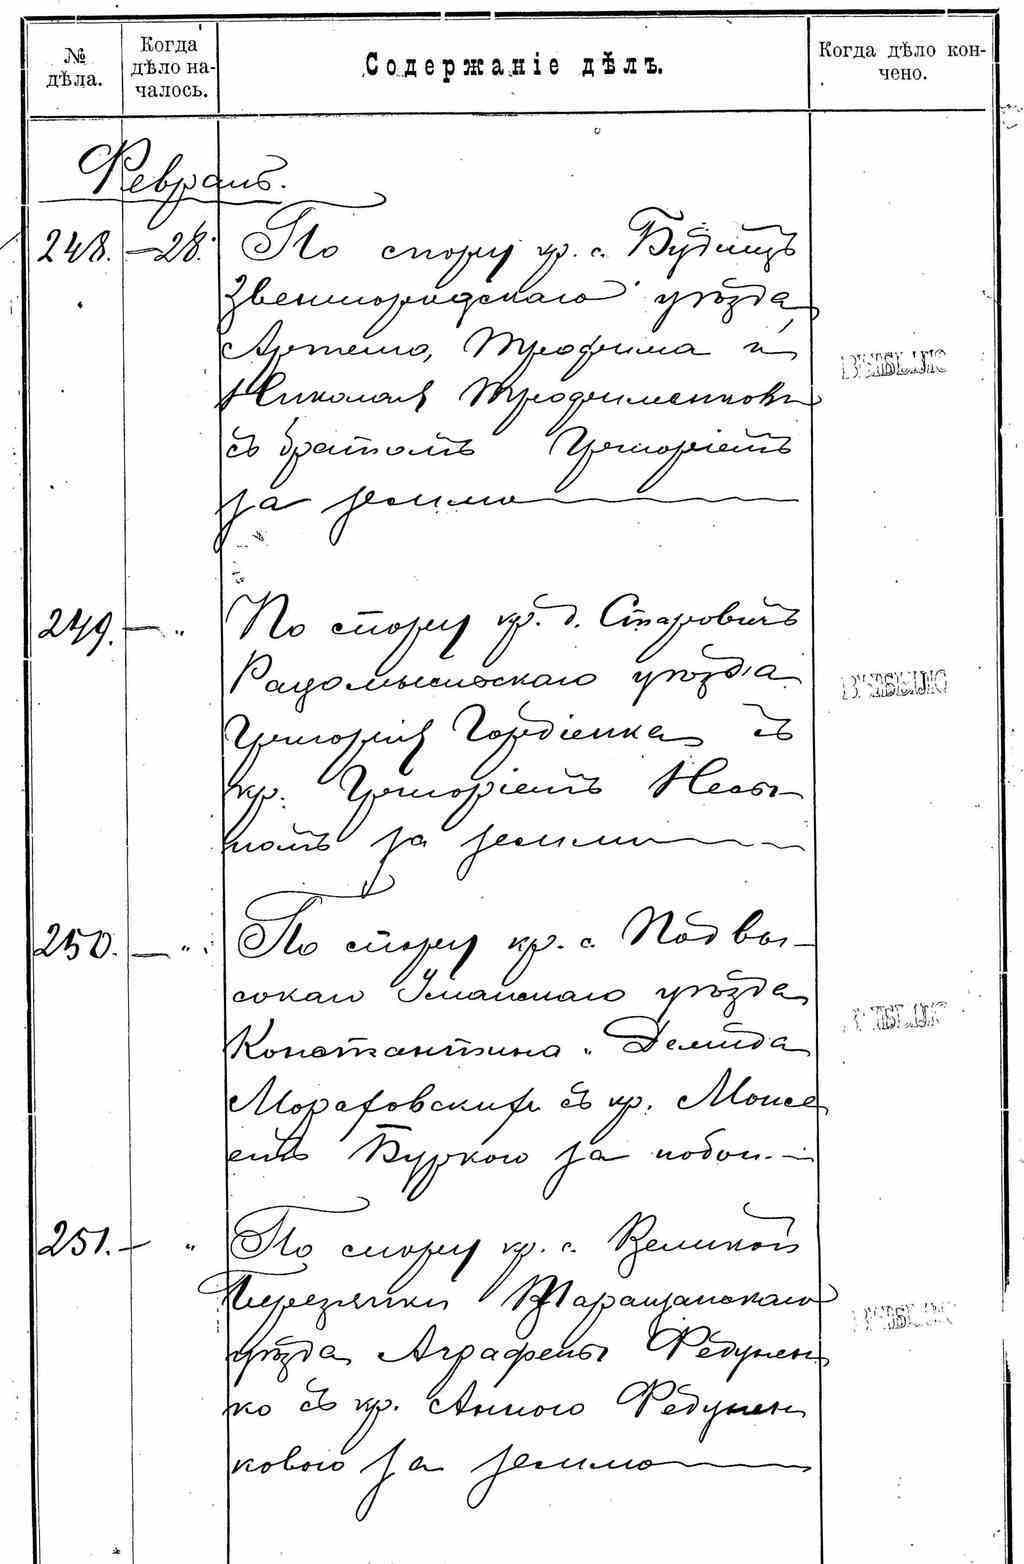 № дѣла.
Когда дѣло началось.
Содержаніе дѣлъ.
Когда дѣло кончено.
Февраль.
248. — 28. По спору кр. с. Будищъ
Звенигородскаго уѣзда,
Артема, Трофима и
Николая Трофименковъ
съ братомъ Григоріемъ
за землю
249. — „ По спору кр. д. Старовичъ
Радомысльскаго уѣзда
Григорія Гордіенка съ
кр. Григоріемъ
за землю
250. — „ По спору кр. с. Подвы-
сокаго Уманскаго уѣзда
Константина и Демида
съ кр. Моисе
емъ Буркою за побои.
251. — „ По спору кр. с. Великой
Березянки Таращанскаго
уѣзда Аграфены Федунен
ко съ кр. Анною Федунен
ковою за землю
ВЫБЫЛО
ВЫБЫЛО
ВЫБЫЛО
ВЫБЫЛО